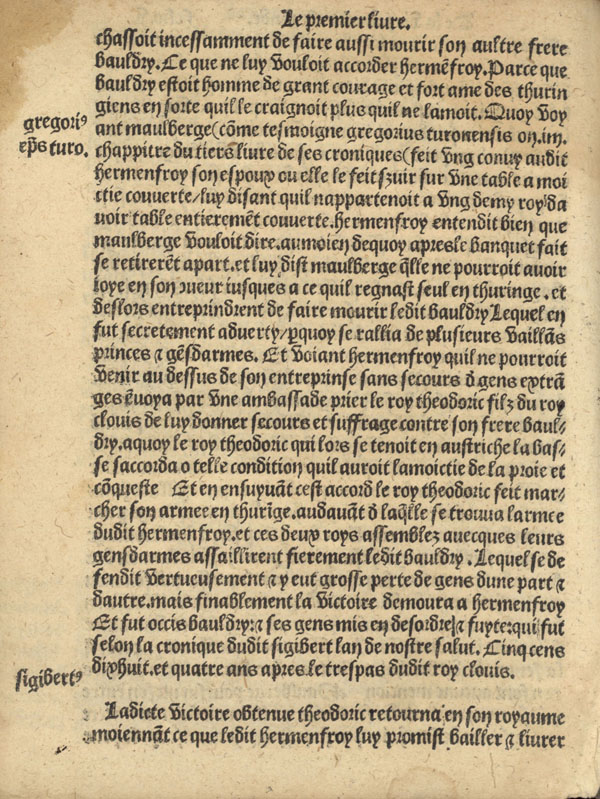 Le premier liure.
chassoit incessamment de faire aussi mourir son aultre frere
bauldry. Ce que ne luy vouloit accorder hermēfroy. Parce que
bauldry estoit homme de grant courage et fort ame des thurin
giens en sorte quil le craignoit plus quil ne lamoit. Quoy voy
gregori⁹
ant maulberge (cōme tesmoigne gregorius turonensis on .iiii.
ep̄s turo.
chappitre du tiers liure de ses croniques (feit vng conuy audit
hermenfroy son espoux ou elle le feit szuir sur vne table a moi
ctie couuerte/ luy disant quil nappartenoit a vng demy roy da
uoir table entieremēt couuerte. hermenfroy entendit bien que
maulberge vouloit dire. aumoien dequoy apresle banquet fait
se retirerēt apart. et luy dist maulberge q̄lle ne pourroit auoir
ioye en son cueur iusques a ce quil regnast seul en thuringe . et
deslors entreprindrent de faire mourir ledit bauldry Lequel en
fut secretement aduerty/ pquoy se rallia de plusieurs vaillās
princes ⁊ gēsdarmes. Et voiant hermenfroy quil ne pourroit
venir au dessus de son entreprinse sans secours d̄ gens extrā
ges ēuoya par vne ambassade prier le roy theodoric filz du roy
clouis de luy donner secours et suffrage contre son frere baul-
dry. aquoy le roy theodoric qui lors se tenoit en austriche la bas/
se saccorda o telle condition quil auroit lamoictie de la proie et
cōqueste Et en ensuyuāt cest accord le roy theodoric feit mar/
cher son armee en thurīge. audauāt d̄ laq̄lle se trouua larmee
dudit hermenfroy. et ces deux roys assemblez auecques leurs
gensdarmes assaillirent fierement ledit bauldry . Lequel se de
fendit vertueusement ⁊ y eut grosse perte de gens dune part ⁊
dautre. mais finablement la victoire demoura a hermenfroy
Et fut occis bauldry: ⁊ ses gens mis en desordre ⁊ fuyte: qui fut
selon la cronique dudit sigibert lan de nostre salut. Cinq cens
sigibert⁹
dixhuit. et quatre ans apres le trespas dudit roy clouis.
Ladicte victoire obtenue theodoric retourna en son royaume
moiennāt ce que ledit hermenfroy luy promist bailler ⁊ liurer